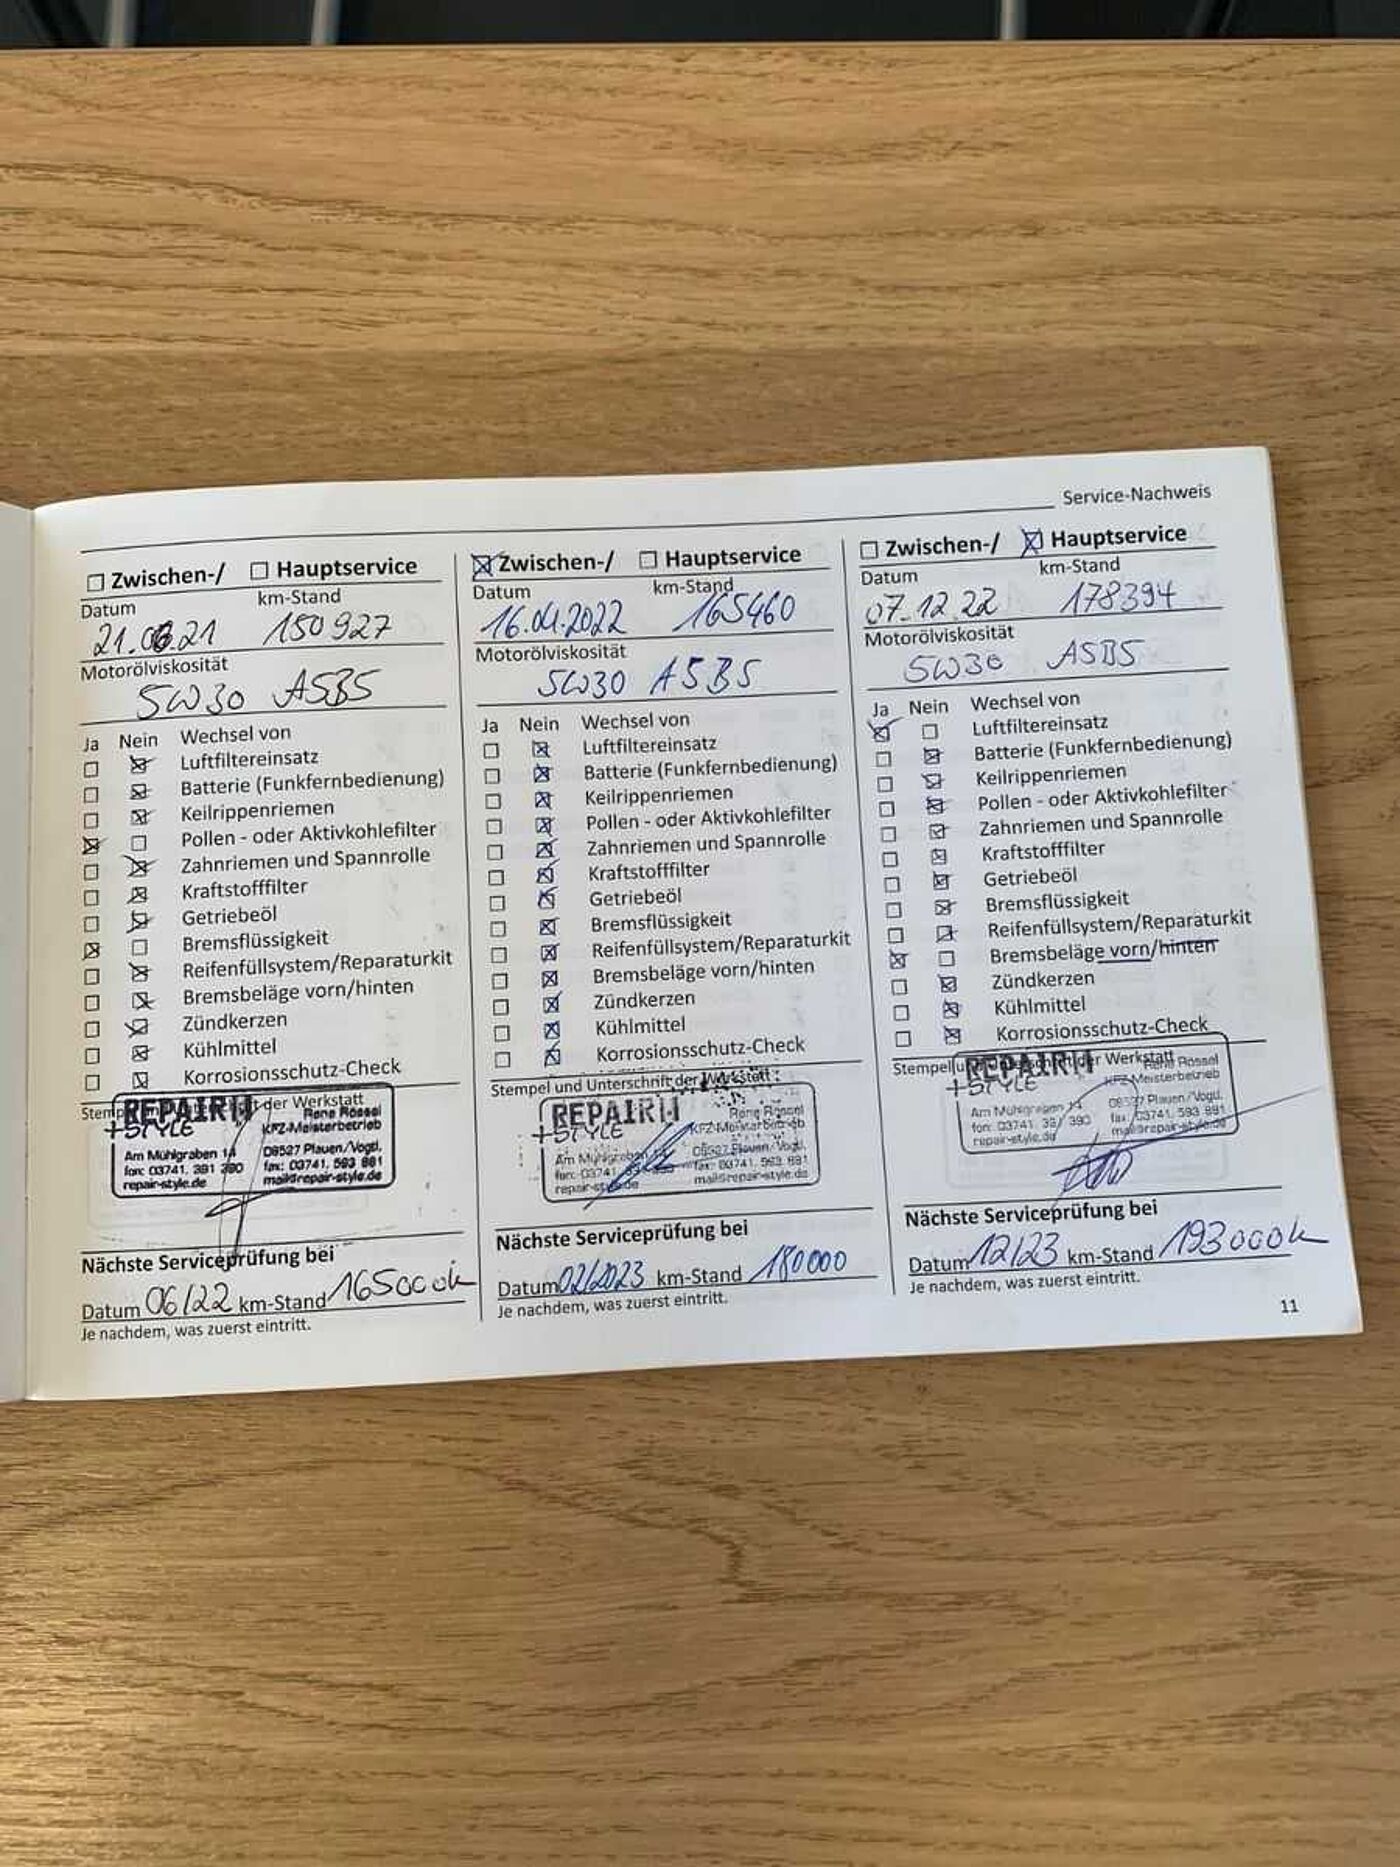 Service-Nachweis
Zwischen-/ Hauptservice
Datum km-Stand
21.06.21 150927
Motorölviskosität
5W30 A5B5
Ja Nein Wechsel von
Luftfiltereinsatz
Batterie (Funkfernbedienung)
Keilrippenriemen
Pollen - oder Aktivkohlefilter
Zahnriemen und Spannrolle
Kraftstofffilter
Getriebeöl
Bremsflüssigkeit
Reifenfüllsystem/Reparaturkit
Bremsbeläge vorn/hinten
Zündkerzen
Kühlmittel
Korrosionsschutz-Check
der Werkstatt
REPAIR
+STYLE
Rene Rössel
KFZ-Meisterbetrieb
Am Mühlgraben 14 08527 Plauen/Vogtl.
fon: 03741. 391 390 fax: 03741. 593 881
repair-style.de mail@repair-style.de
Nächste Serviceprüfung bei
Datum 06/22 km-Stand 165000k
Je nachdem, was zuerst eintritt.
Zwischen-/ Hauptservice
Datum km-Stand
16.04.2022 165460
Motorölviskosität
5W30 A5B5
Ja Nein Wechsel von
Luftfiltereinsatz
Batterie (Funkfernbedienung)
Keilrippenriemen
Pollen - oder Aktivkohlefilter
Zahnriemen und Spannrolle
Kraftstofffilter
Getriebeöl
Bremsflüssigkeit
Reifenfüllsystem/Reparaturkit
Bremsbeläge vorn/hinten
Zündkerzen
Kühlmittel
Korrosionsschutz-Check
Stempel und Unterschrift der Werkstatt :
REPAIR
+STYLE
Rene Rössel
KFZ-Meisterbetrieb
Am Mühlgraben 08527 Plauen/Vogtl.
fon: 03741. 390 fax: 03741. 593 881
repair-style.de mail@repair-style.de
Nächste Serviceprüfung bei
Datum 02/2023 km-Stand 180000
Je nachdem, was zuerst eintritt.
Zwischen-/ Hauptservice
Datum km-Stand
07.12.22 178394
Motorölviskosität
5W30 A5B5
Ja Nein Wechsel von
Luftfiltereinsatz
Batterie (Funkfernbedienung)
Keilrippenriemen
Pollen - oder Aktivkohlefilter
Zahnriemen und Spannrolle
Kraftstofffilter
Getriebeöl
Bremsflüssigkeit
Reifenfüllsystem/Reparaturkit
Bremsbeläge vorn/hinten
Zündkerzen
Kühlmittel
Korrosionsschutz-Check
Stempel der Werkstatt
REPAIR
+STYLE
Rene Rössel
KFZ-Meisterbetrieb
Am Mühlgraben 14 08527 Plauen/Vogtl.
fon: 03741. 391 390 fax: 03741. 593 881
repair-style.de mail@repair-style.de
Nächste Serviceprüfung bei
Datum 12/23 km-Stand 193000k
Je nachdem, was zuerst eintritt.
11